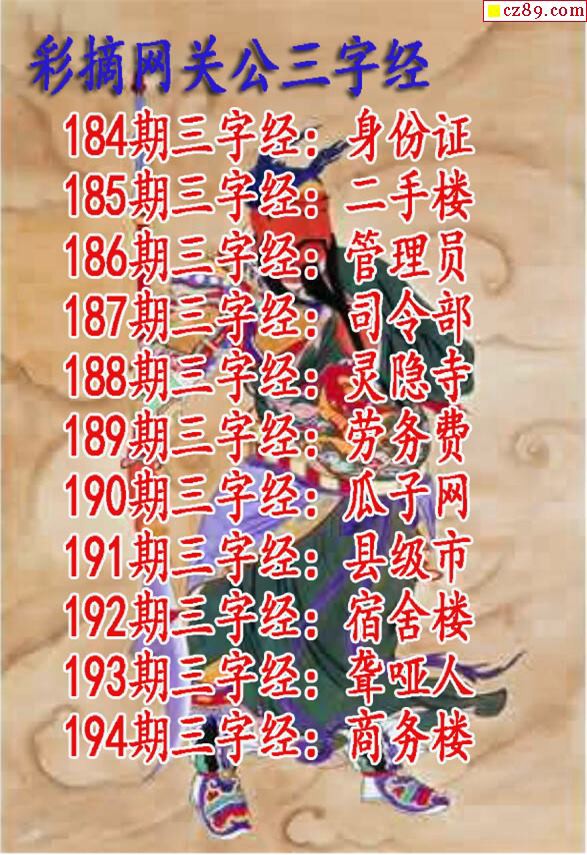 cz89.com
彩摘网关公三字经
184期三字经：身份证
185期三字经：二手楼
186期三字经：管理员
187期三字经：司令部
188期三字经：灵隐寺
189期三字经：劳务费
190期三字经：瓜子网
191期三字经：县级市
192期三字经：宿舍楼
193期三字经：聋哑人
194期三字经：商务楼